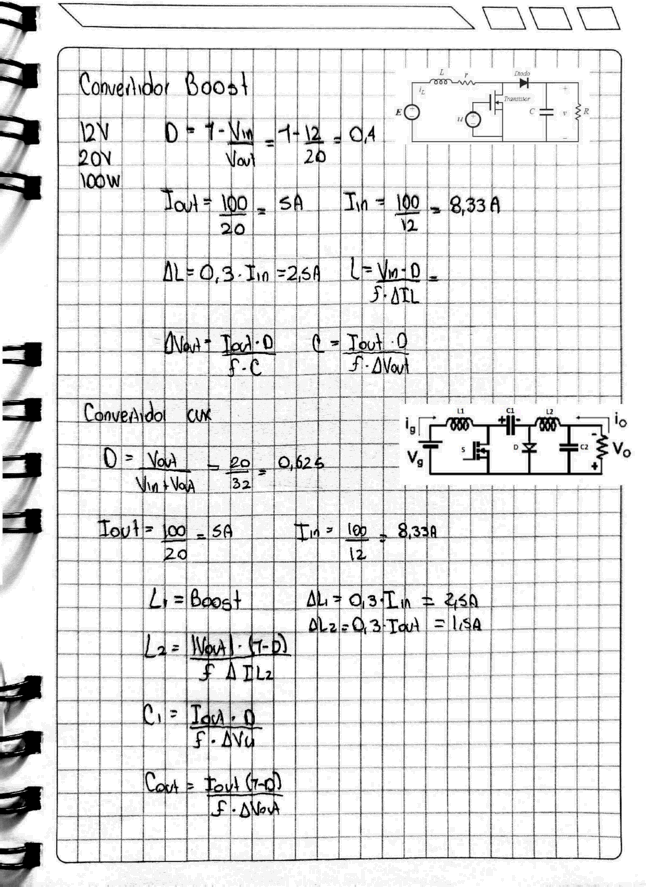 Convertidor Boost
L r Diodo
iL Transistor
E u C + v - R
12V D = 1 - Vin/Vout = 1 - 12/20 = 0,4
20V
100W
Iout = 100/20 = 5A Iin = 100/12 = 8,33 A
ΔL = 0,3 · Iin = 2,5A L = Vin · D / f · ΔIL =
ΔVout = Iout · D / f · C C = Iout · D / f · ΔVout
Convertidor cuk
ig L1 + C1 - L2 io
Vg S D C2 - Vo +
D = Vout / Vin + Vout = 20/32 = 0,625
Iout = 100/20 = 5A Iin = 100/12 = 8,33A
L1 = Boost ΔL1 = 0,3 · Iin = 2,5A
ΔL2 = 0,3 · Iout = 1,5A
L2 = |Vout| · (1-D) / f Δ IL2
C1 = Iout · D / f · ΔVc1
Cout = Iout (1-D) / f · ΔVout